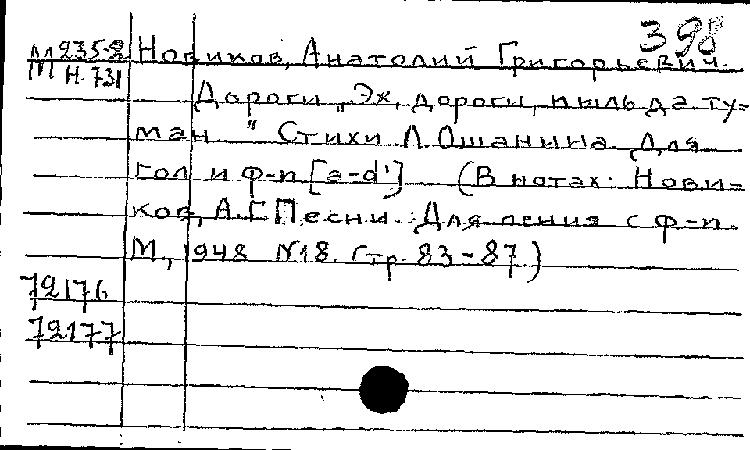 398
М 235-2 Новиков, Анатолий Григорьевич.
М Н. 731
Дороги „Эх, дороги, пыль да ту=
ман " Стихи Л. Ошанина Для
гол и ф-п [a-d'] (В нотах: Нови=
ков, А.Г. Песни. Для пения с ф-п.
М., 1948 N18. Стр. 83-87.)
72176
72177